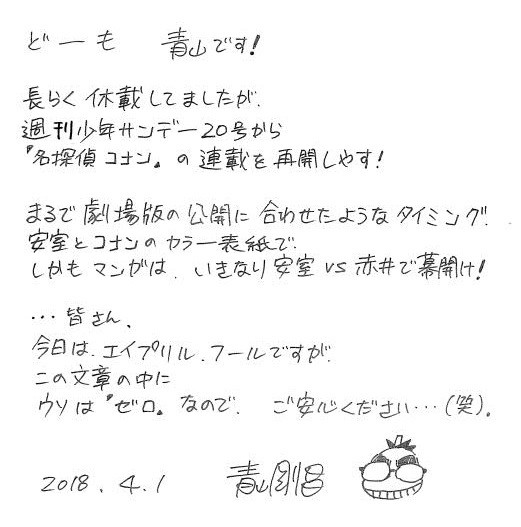 どーも 青山です!
長らく休載してましたが、
週刊少年サンデー20号から
『名探偵コナン』の連載を再開しやす!
まるで劇場版の公開に合わせたようなタイミング!
安室とコナンのカラー表紙で、
しかもマンガは、いきなり安室vs赤井で幕開け!
…皆さん、
今日は、エイプリル.フールですが、
この文章の中に
ウソは『ゼロ』なので、 ご安心ください…(笑)。
2018.4.1 青山剛昌